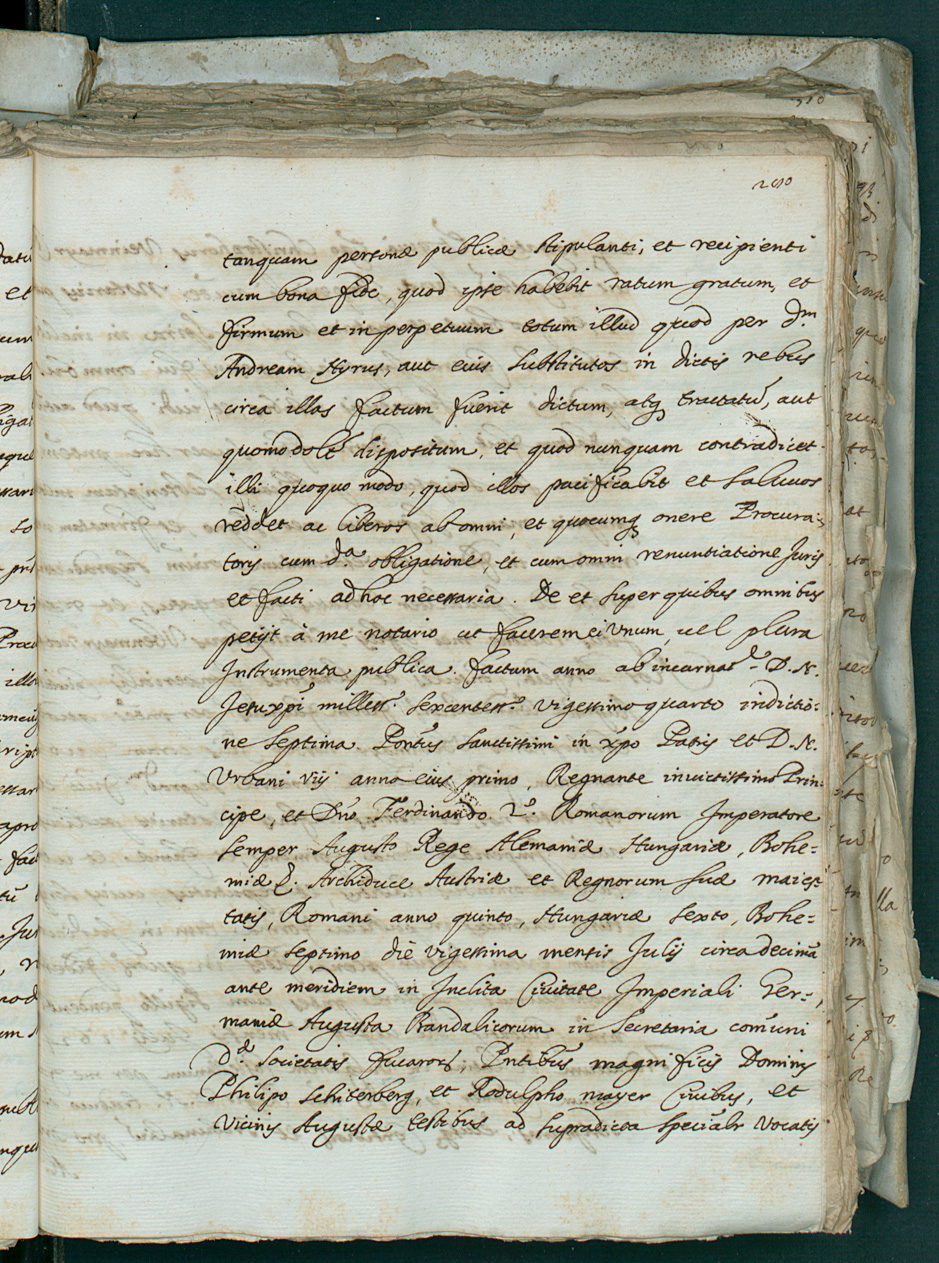 280
tanquam personæ publicæ stipulanti, et recipienti
cum bona fide, quod ipse habebit ratum gratum, et
firmum et in perpetuum totum illud quod per Dm
Andream Hyrus, aut eius substitutos in dictis rebus
circa illas factum fuerit dictum, atq tractatu, aut
quomodolt dispositum, et quod nunquam contradicet
illi quoquo modo, quod illos pacificabit et saluos
reddet ac liberos ab omni, et quocumq onere Procura-
toris cum da obligatione, et cum omni renuntiatione Juris
et facti ad hoc necessaria. De et super quibus omnibus
petijt à me notario ut facerem ei Vnum, uel plura
Instrumenta publica. factum anno ab incarnate D. N.
Jesuxpi milless.o sexcentess.o vigessimo quarto indictio=
ne septima. Pontus sanctissimi in xpo Patris et D. N.
Vrbani Viij anno eius primo, Regnante inuictissimo Prin-
cipe, et Dno Ferdinando 2.o Romanorum Imperatore
semper Augusto Rege Alemaniæ Hungariæ, Bohe=
miæ &. Archiduce Austriæ et Regnorum suæ maies-
tatis, Romani anno quinto, Hungariæ sexto, Bohe=
miæ septimo die vigessima mensis Julij circa decimã
ante meridiem in Inclita Ciuitate Imperiali Ger=
maniæ Augusta Bandalicorum in Secretaria comuni
dæ Societatis fucaror; Pntibus magnificis Dominis
Philipo Schiterberg, et Rodulpho mayer Ciuibus, et
Vicinis Augustæ testibus ad supradicta specialr Vocatis